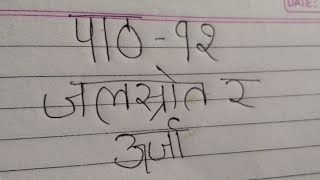 पाठ-१२
जलस्रोत र
ऊर्जा
DATE: